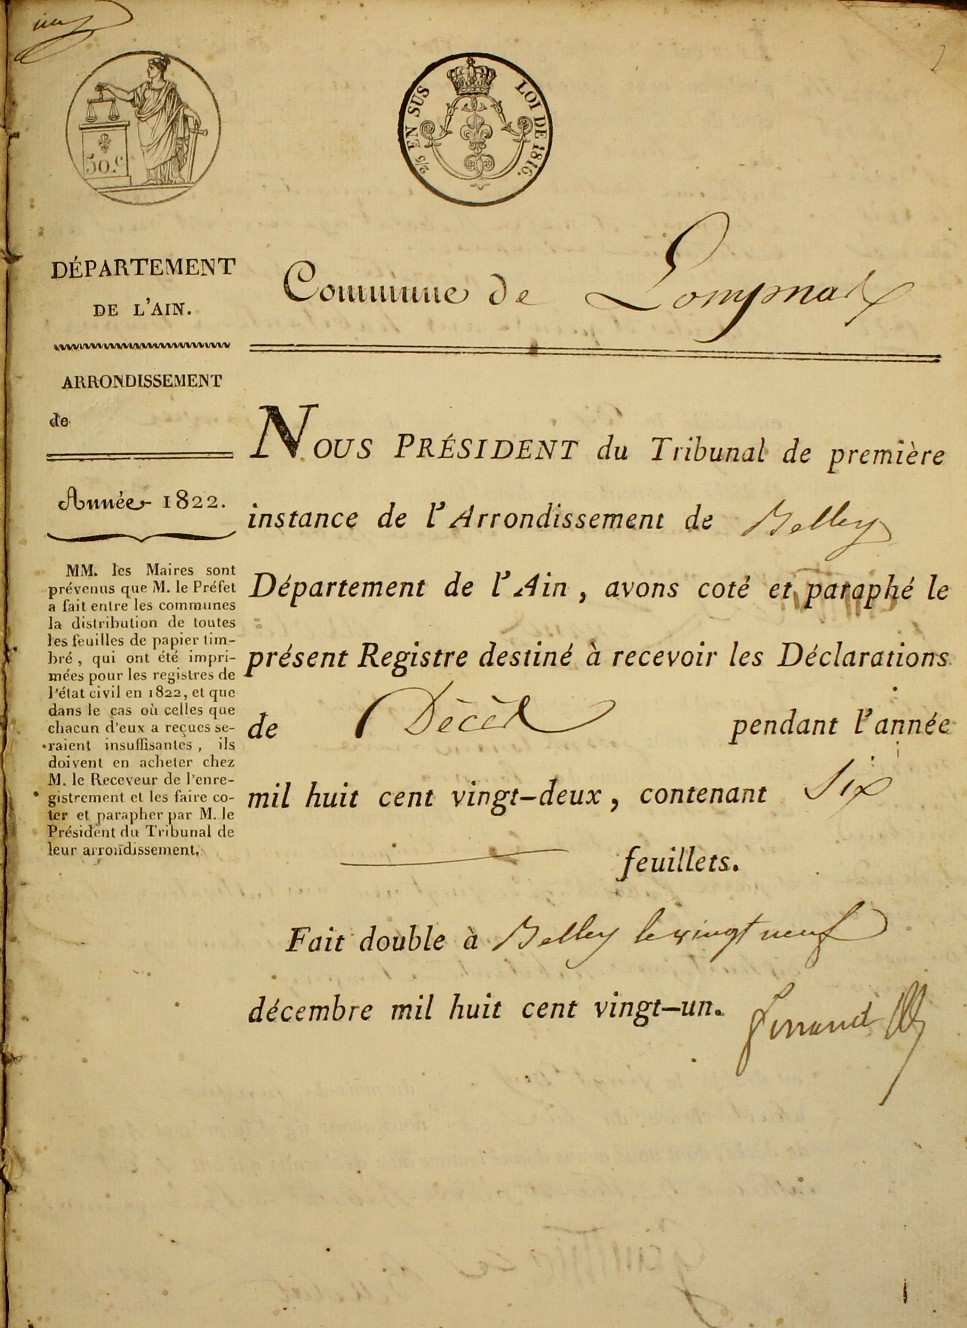 50.c
2/5 EN SUS LOI DE 1816.
DÉPARTEMENT
DE L'AIN.
Commune de Lompnas
ARRONDISSEMENT
de
Année 1822.
MM. les Maires sont
prévenus que M. le Préfet
a fait entre les communes
la distribution de toutes
les feuilles de papier tim-
bré, qui ont été impri-
mées pour les registres de
l'état civil en 1822, et que
dans le cas où celles que
chacun d'eux a reçues se-
raient insuffisantes, ils
doivent en acheter chez
M. le Receveur de l'enre-
gistrement et les faire co-
ter et parapher par M. le
Président du Tribunal de
leur arrondissement.
NOUS PRÉSIDENT du Tribunal de première
instance de l'Arrondissement de Belley
Département de l'Ain, avons coté et paraphé le
présent Registre destiné à recevoir les Déclarations
de Décès pendant l'année
mil huit cent vingt-deux, contenant Six
feuillets.
Fait double à Belley le vingt neuf
décembre mil huit cent vingt-un.